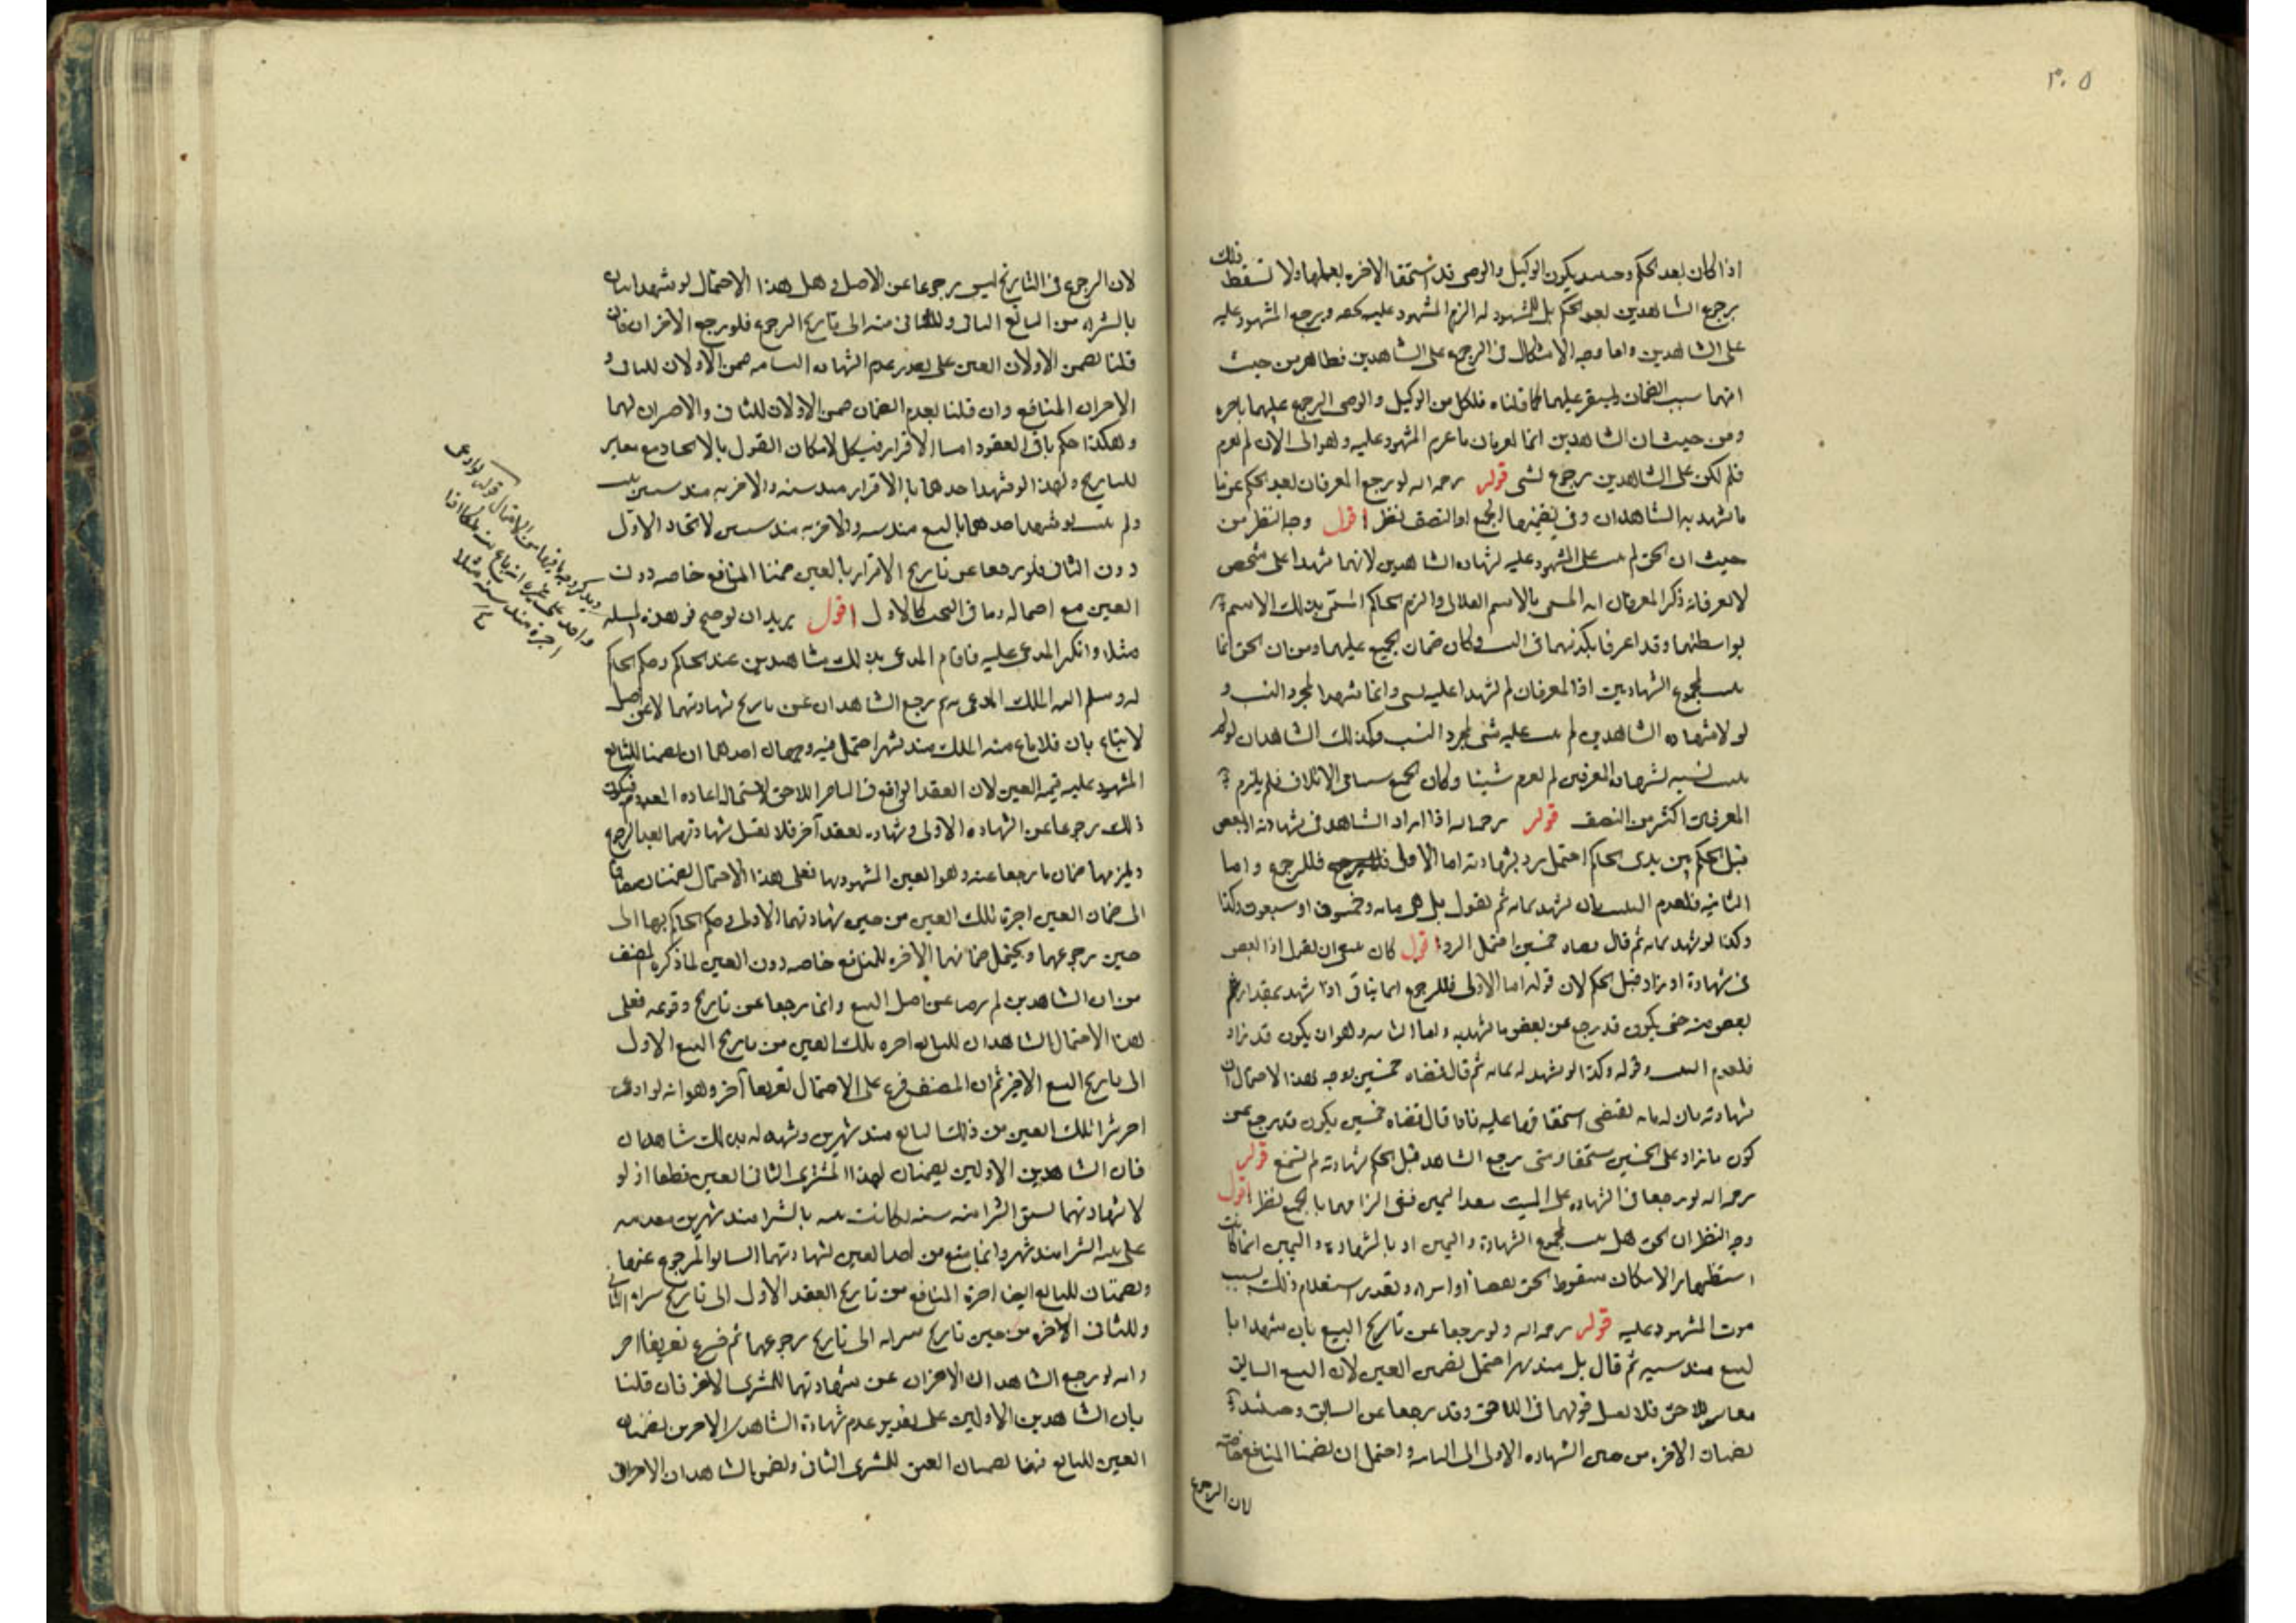 ٣٠٥
اذا كان بعد الحكم وحينئذ يكون الوكيل والوصي قد استحقا الاجرة بعملهما ولا تسقط ذلك
برجوع الشاهدين بعد الحكم بل للمشهود له الزم المشهود عليه بحقه ويرجع المشهود عليه
على الشاهدين واما وجه الاشكال في الرجوع على الشاهدين فظاهر من حيث
انهما سبب الضمان وليستقر عليهما كما قلناه فلكل من الوكيل والوصي الرجوع عليهما باجره
ومن حيث ان الشاهدين انما يغرمان ما غرم المشهود عليه وهو الى الان لم يغرم
فلم يكن على الشاهدين رجوع بشي قوله رحمه الله لو رجع المعرفان بعد الحكم غرما
ما شهد به الشاهدان وفي تضمينهما الجميع او النصف نظر اقول وجه النظر من
حيث ان الحق لم يثبت على المشهود عليه لشهاده الشاهدين لانهما شهدا على شخص
لا يعرفانه ذكر المعرفان انه المسمى بالاسم الفلاني والزم الحاكم المسمى بذلك الاسم
بواسطتهما وقد اعرفا بكذبهما في النسب فكان ضمان الجميع عليهما ومن ان الحق انما
يثبت بمجموع الشهادتين اذ المعرفان لم يشهدا عليه بشي وانما شهدا بمجرد النسب و
لو لا شهاده الشاهدين لم يثبت عليه شي بمجرد النسب وكذلك الشاهدان لو لم
يثبت نسبه بشهادة المعرفين لم يغرم شيئا وكان الجميع سببا في الاتلاف فلم يلزم
المعرفين اكثر من النصف قوله رحمه الله اذا زاد الشاهد في شهادته او نقص
قبل الحكم بين يدي الحاكم احتمل رد شهادته اما الاولى فللرجوع واما
الثانية فلعدم التثبت بان يشهد بمائة ثم يقول بل هي مائة وخمسون او سبعون وكذا
وكذا لو شهد بمائة ثم قال قضاه خمسين احتمل الرد اقول كان ينبغي ان يقول اذا نقص
في شهادة او زاد قبل الحكم لان قوله اما الاولى فللرجوع انما يتاتى اذا شهد بمقدار ثم
نقص منه حتى يكون قد رجع عن بعض ما شهد به واما الثانية وهو ان يكون قد زاد
فلعدم التثبت وقوله وكذا لو شهد له بمائة ثم قال قضاه خمسين يوجه لهذا الاحتمال ان
شهادته بان له مائة تقتضي استحقاقها عليه فاذا قال قضاه خمسين يكون قد رجع عن
كون ما زاد على الخمسين مستحقا ومتى رجع الشاهد قبل الحكم بشهادته لم تسمع قوله
رحمه الله لو رجعا في الشهادة على الميت بعد اليمين ففي الزامهما بالجميع نظر اقول
وجه النظر ان الحق هل يثبت بمجموع الشهادة واليمين او بالشهادة واليمين انما كانت
استظهارا لامكان سقوط الحق بقضاء او ابراء وتعذر استعلام ذلك بسبب
موت المشهود عليه قوله رحمه الله ولو رجعا عن تاريخ البيع بان شهدا با
لبيع منذ سنة ثم قال بل منذ شهر احتمل تضمين العين لان البيع السابق
مغاير للاحق فلا يقبل قولهما في اللاحق وقد رجعا عن السابق وحينئذ
يضمنان الاجره من حين الشهاده الاولى الى الثانية واحتمل ان يضمنا المنافع خاصة
لان الرجوع
لان الرجوع في التاريخ ليس رجوعا عن الاصل وهل هذا الاحتمال لو شهد اثنان
بالشراء من البائع الثاني وللثاني منه الى تاريخ الرجوع فلو رجع الاخران فان
قلنا يضمن الاولان العين على تقدير عدم الشهادة الثانية ضمن الاولان للثاني و
الاخران المنافع وان قلنا بعدم الضمان ضمن الاولان للثاني والاخران لهما
وهكذا حكم باقي العقود اما الاقرار فيشكل لامكان القول بالاتحاد مع تغاير
التاريخ ولهذا لو شهد احدهما بالاقرار منذ سنة والاخر به منذ سنتين يثبت
ولم يثبت لو شهد احدهما بالبيع منذ سنة والاخر به منذ سنتين لاتحاد الاول
دون الثاني فلو رجعا عن تاريخ الاقرار بالعين ضمنا المنافع خاصة دون
العين مع احتماله وما في البحث كالاول اقول يريد ان يوضح في هذه المسئله
مثلا وانكر المدعى عليه فاقام المدعي بذلك شاهدين عند الحاكم وحكم الحاكم
له وسلم اليه الملك المدعى به ثم رجع الشاهدان عن تاريخ شهادتهما لا عن اصل
لابتياع بان فلانا باع منه الملك منذ شهر احتمل فيه وجهان احدهما ان يضمنا للبائع
المشهود عليه قيمة العين لان العقد الواقع في اللاحق لاستحالة اعادة المعدوم فيكون
ذلك رجوعا عن الشهاده الاولى وشهاده بعقد آخر فلا تقبل شهادتهما بعد الرجوع
ويلزمهما ضمان ما رجعا عنه وهو العين المشهود بها فعلى هذا الاحتمال يضمنان مضافا
الى ضمان العين اجرة تلك العين من حين شهادتهما الاولى وحكم الحاكم بها الى
حين رجوعهما ويحتمل ضمانهما الاجره للمنافع خاصة دون العين لما ذكره المصنف
من ان الشاهدين لم يرجعا عن اصل البيع وانما رجعا عن تاريخ وقوعه فعلى
هذا الاحتمال الشاهدان للبائع اجره تلك العين من تاريخ البيع الاول
الى تاريخ البيع الاخير ثم ان المصنف فرع على الاحتمال تفريعا آخر وهو انه لو ادعى
اخر شرا تلك العين من ذلك البائع منذ شهرين وشهد له بذلك شاهدان
فان الشاهدين الاولين يضمنان لهذا المشتري الثاني العين قطعا اذ لو
لا شهادتهما بسبق الشرا منه سنه لكانت بينه بالشرا منذ شهرين مقدمه
على بينه الشرا منذ شهر وانما منع من اخذ العين لشهادتهما السابق المرجوع عنها
ويضمنان للبائع ايضا اجرة المنافع من تاريخ العقد الاول الى تاريخ شراء الثاني
وللثاني الاجره من حين تاريخ شرائه الى تاريخ رجوعهما ثم فرع تفريعا اخر
وانه لو رجع الشاهدان الاخران عن شهادتهما للمشتري الاخر فان قلنا
بان الشاهدين الاولين على تقدير عدم شهادة الشاهدين الاخرين يضمنان
العين للبائع فهنا يضمنان العين للمشتري الثاني ويضمن الشاهدان الاخران